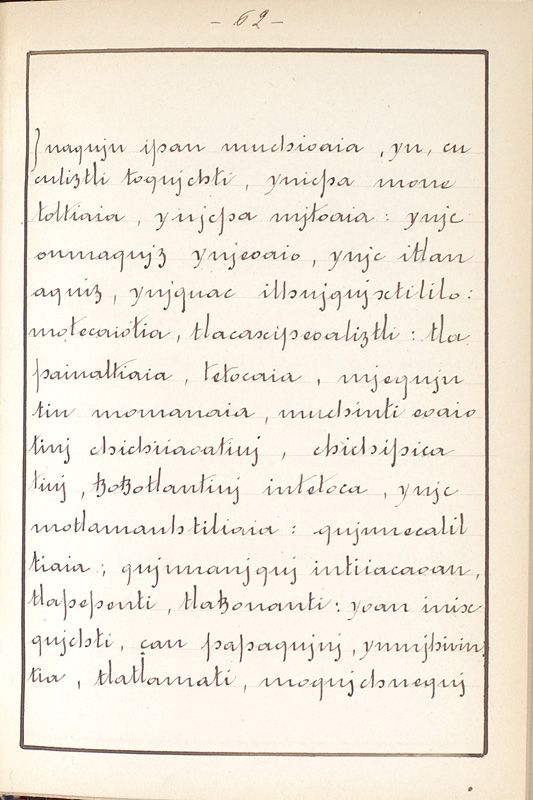 - 62 -
Jnaqujn ipan muchioaia, yn, cu
culiztli toqujchti, ynicpa mone
toltiaia, ynjcpa mjtoaia: ynjc
onmaqujz ynjeoaio, ynjc itlan
aquiz, ynjquac ilhujqujxtililo:
motecaiotia, tlacaxipeoaliztli: tla
painaltiaia, tetocaia, mjequjn
tin momanaia, muchinti eoaio
tinj chichiiaoatinj, chichipica
tinj, tzotzotlantinj intetoca, ynjc
motlamauhtiliaia: qujnnecalil
tiaia; qujnnanjquj intiiacaoan,
tlapepenti, tlatzonanti: yoan inix
qujchti, çan papaqujnj, ynmjhivin
tia, tlatlamati, moqujchnequj